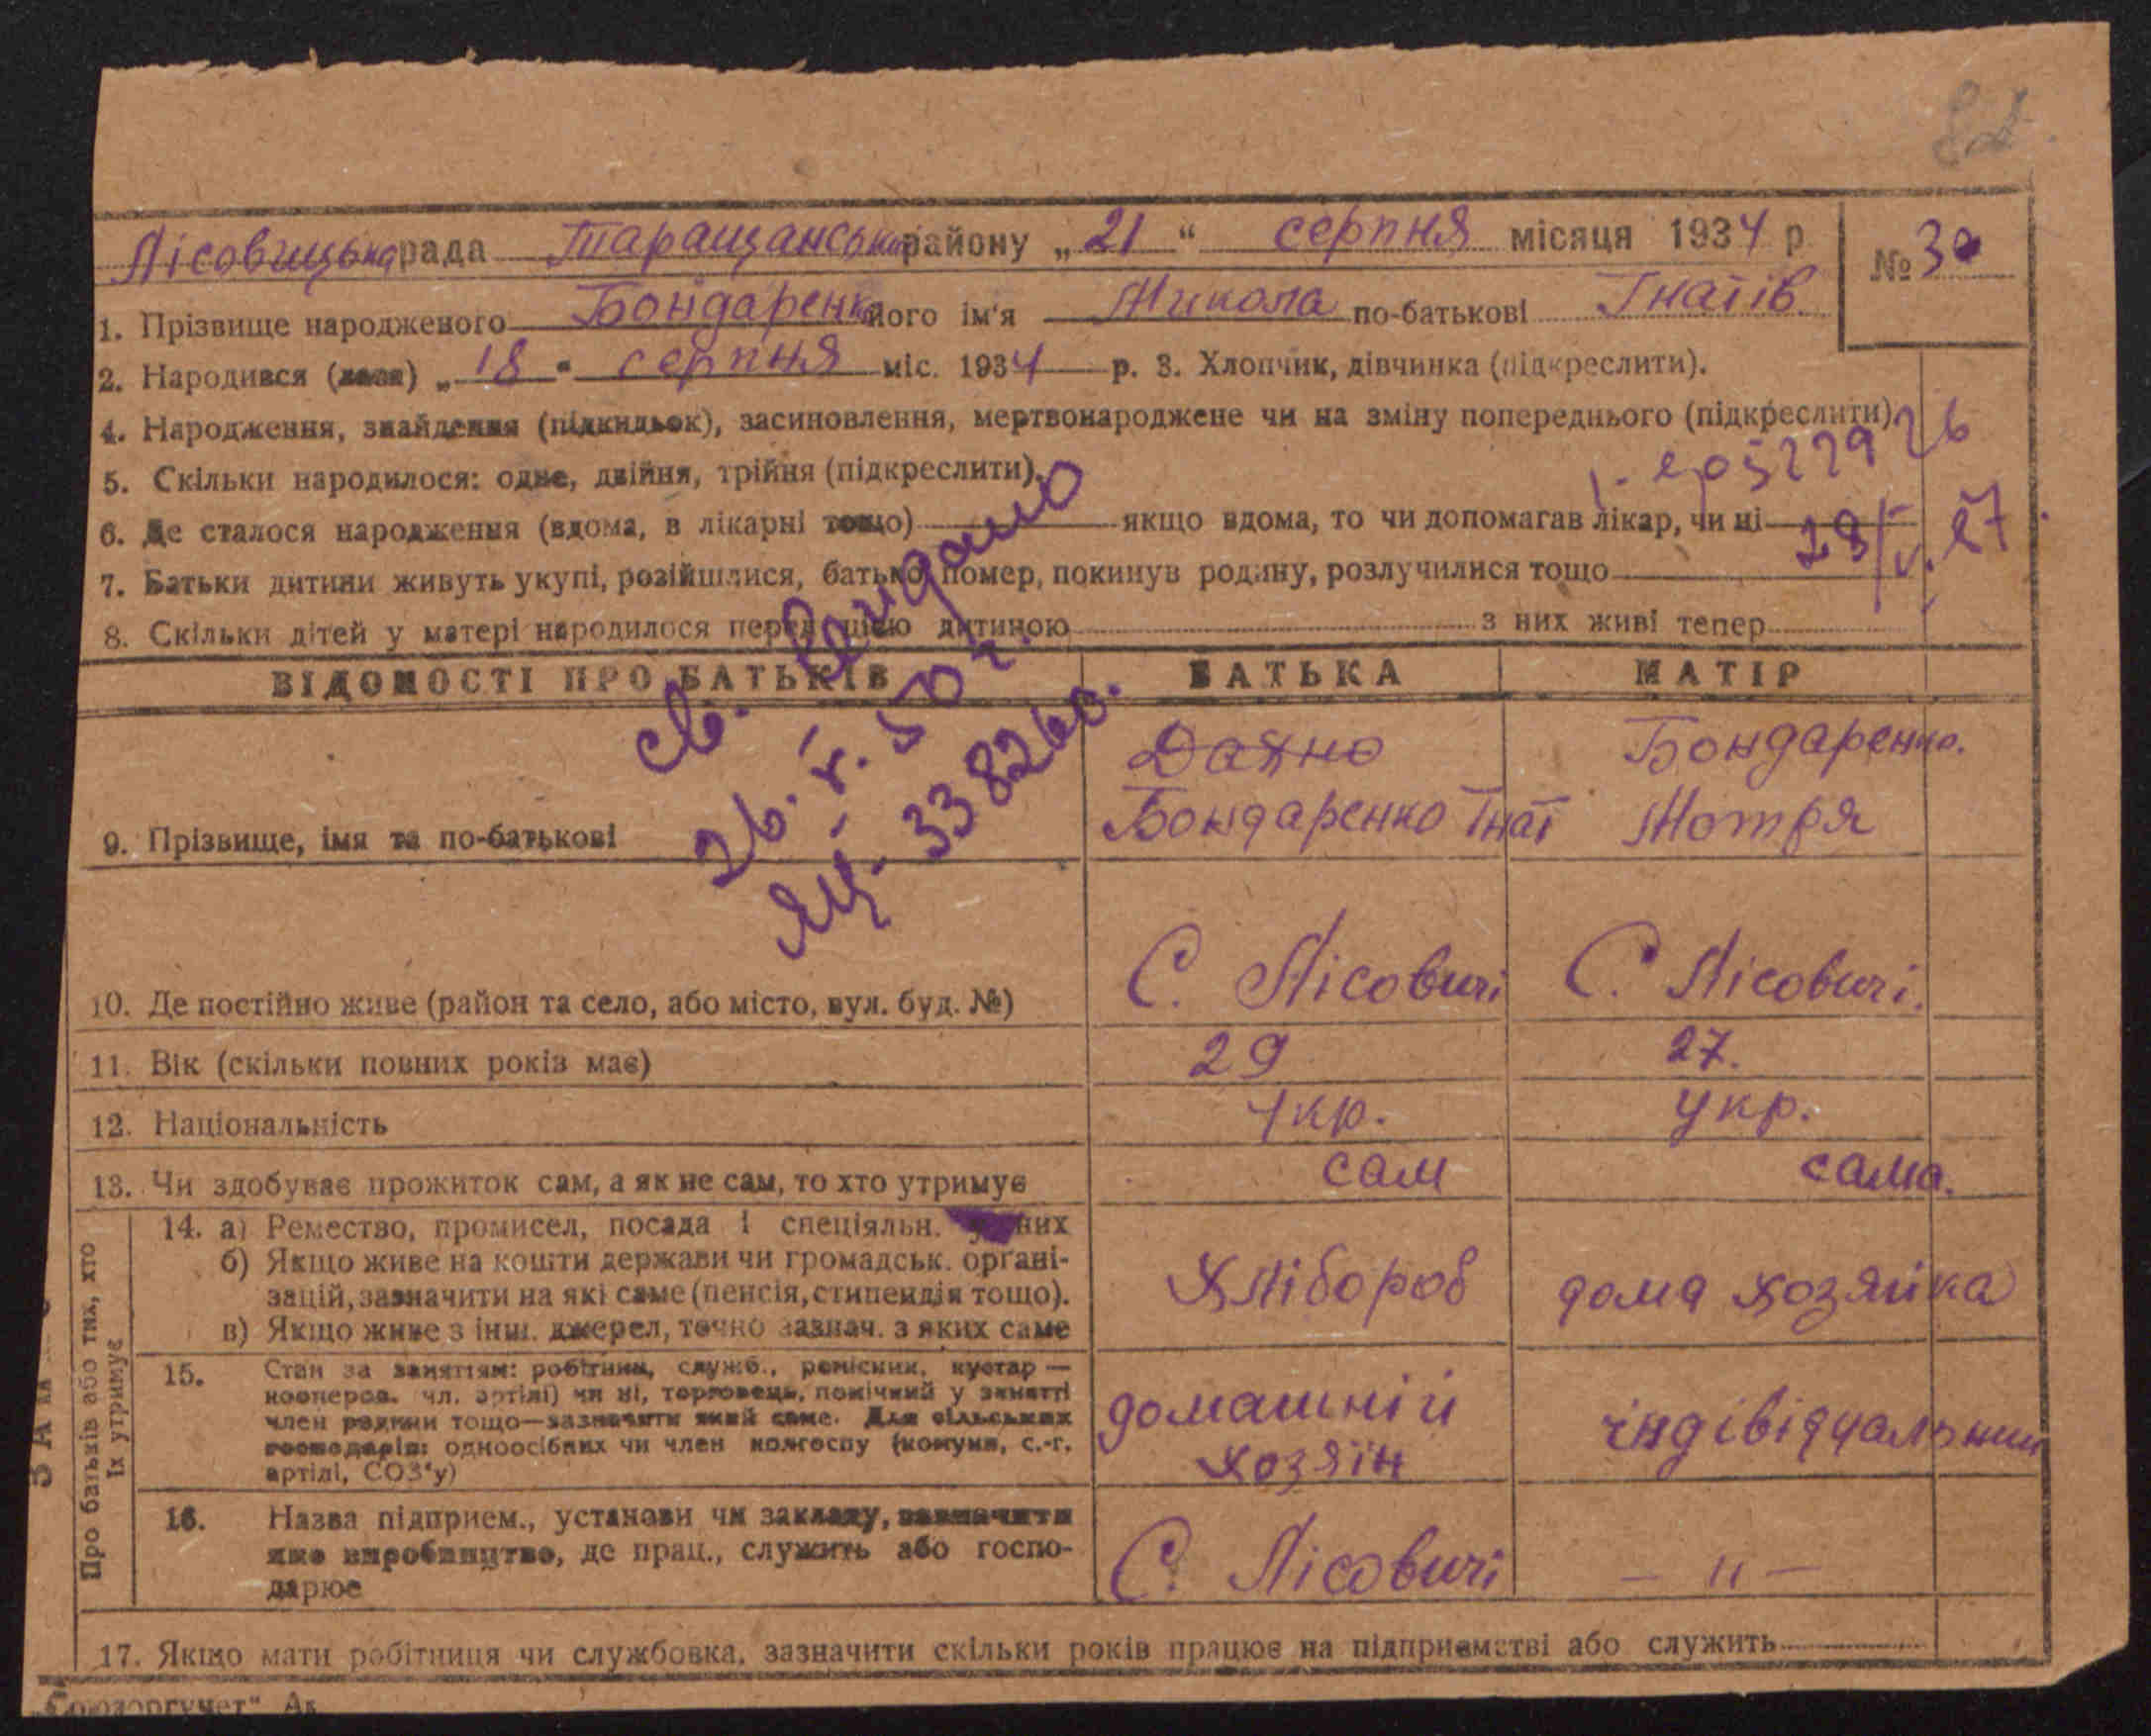 Лісовицька рада Таращанськ району „21“ серпня місяця 1934 р
№ 30
1. Прізвище народженого Бондаренко його ім'я Микола по-батькові Гнатів.
2. Народився (лася) „18“ серпня міс. 1934 р. 3. Хлопчик, дівчинка (підкреслити).
4. Народження, знайдення (підкидьок), засиновлення, мертвонароджене чи на зміну попереднього (підкреслити)
5. Скільки народилося: одне, двійня, трійня (підкреслити).
6. Де сталося народження (вдома, в лікарні тощо) якщо вдома, то чи допомагав лікар, чи ні
7. Батьки дитини живуть укупі, розійшлися, батько помер, покинув родину, розлучилися тощо
8. Скільки дітей у матері народилося перед цією дитиною з них живі тепер
св. видано
26. V. 50 г.
ЯЦ. 338260.
ВІДОМОСТІ ПРО БАТЬКІВ БАТЬКА МАТІР
Бондаренко.
9. Прізвище, імя та по-батькові Бондаренко Гнат Мотря
10. Де постійно живе (район та село, або місто, вул. буд. №) С. Лісовичі С. Лісовичі.
11. Вік (скільки повних років має) 29 27.
12. Національність Укр. Укр.
13. Чи здобуває прожиток сам, а як не сам, то хто утримує сам сама.
Про батьків або тих, хто їх утримує
14. а) Ремество, промисел, посада і спеціяльн. у них
б) Якщо живе на кошти держави чи громадськ. органі-
зацій, зазначити на які саме (пенсія, стипендія тощо). Хлібороб дома хозяйка
в) Якщо живе з інш. джерел, точно зазнач. з яких саме
15. Стан за заняттям: робітник, служб., ремісник, кустар —
коопером. чл. артілі) чи ні, торговець, помічний у занятті
член родини тощо—зазначити який саме. Для сільських домашній індівідуальний
господарів: одноосібних чи член колгоспу (комуни, с.-г. хозяїн
артілі, СОЗ'у)
16. Назва підприєм., установи чи закладу, зазначити
яке виробництво, де прац., служить або госпо- С. Лісовичі — " —
дарює
17. Якщо мати робітниця чи службовка, зазначити скільки років працює на підприємстві або служить
„Союзоргучет"